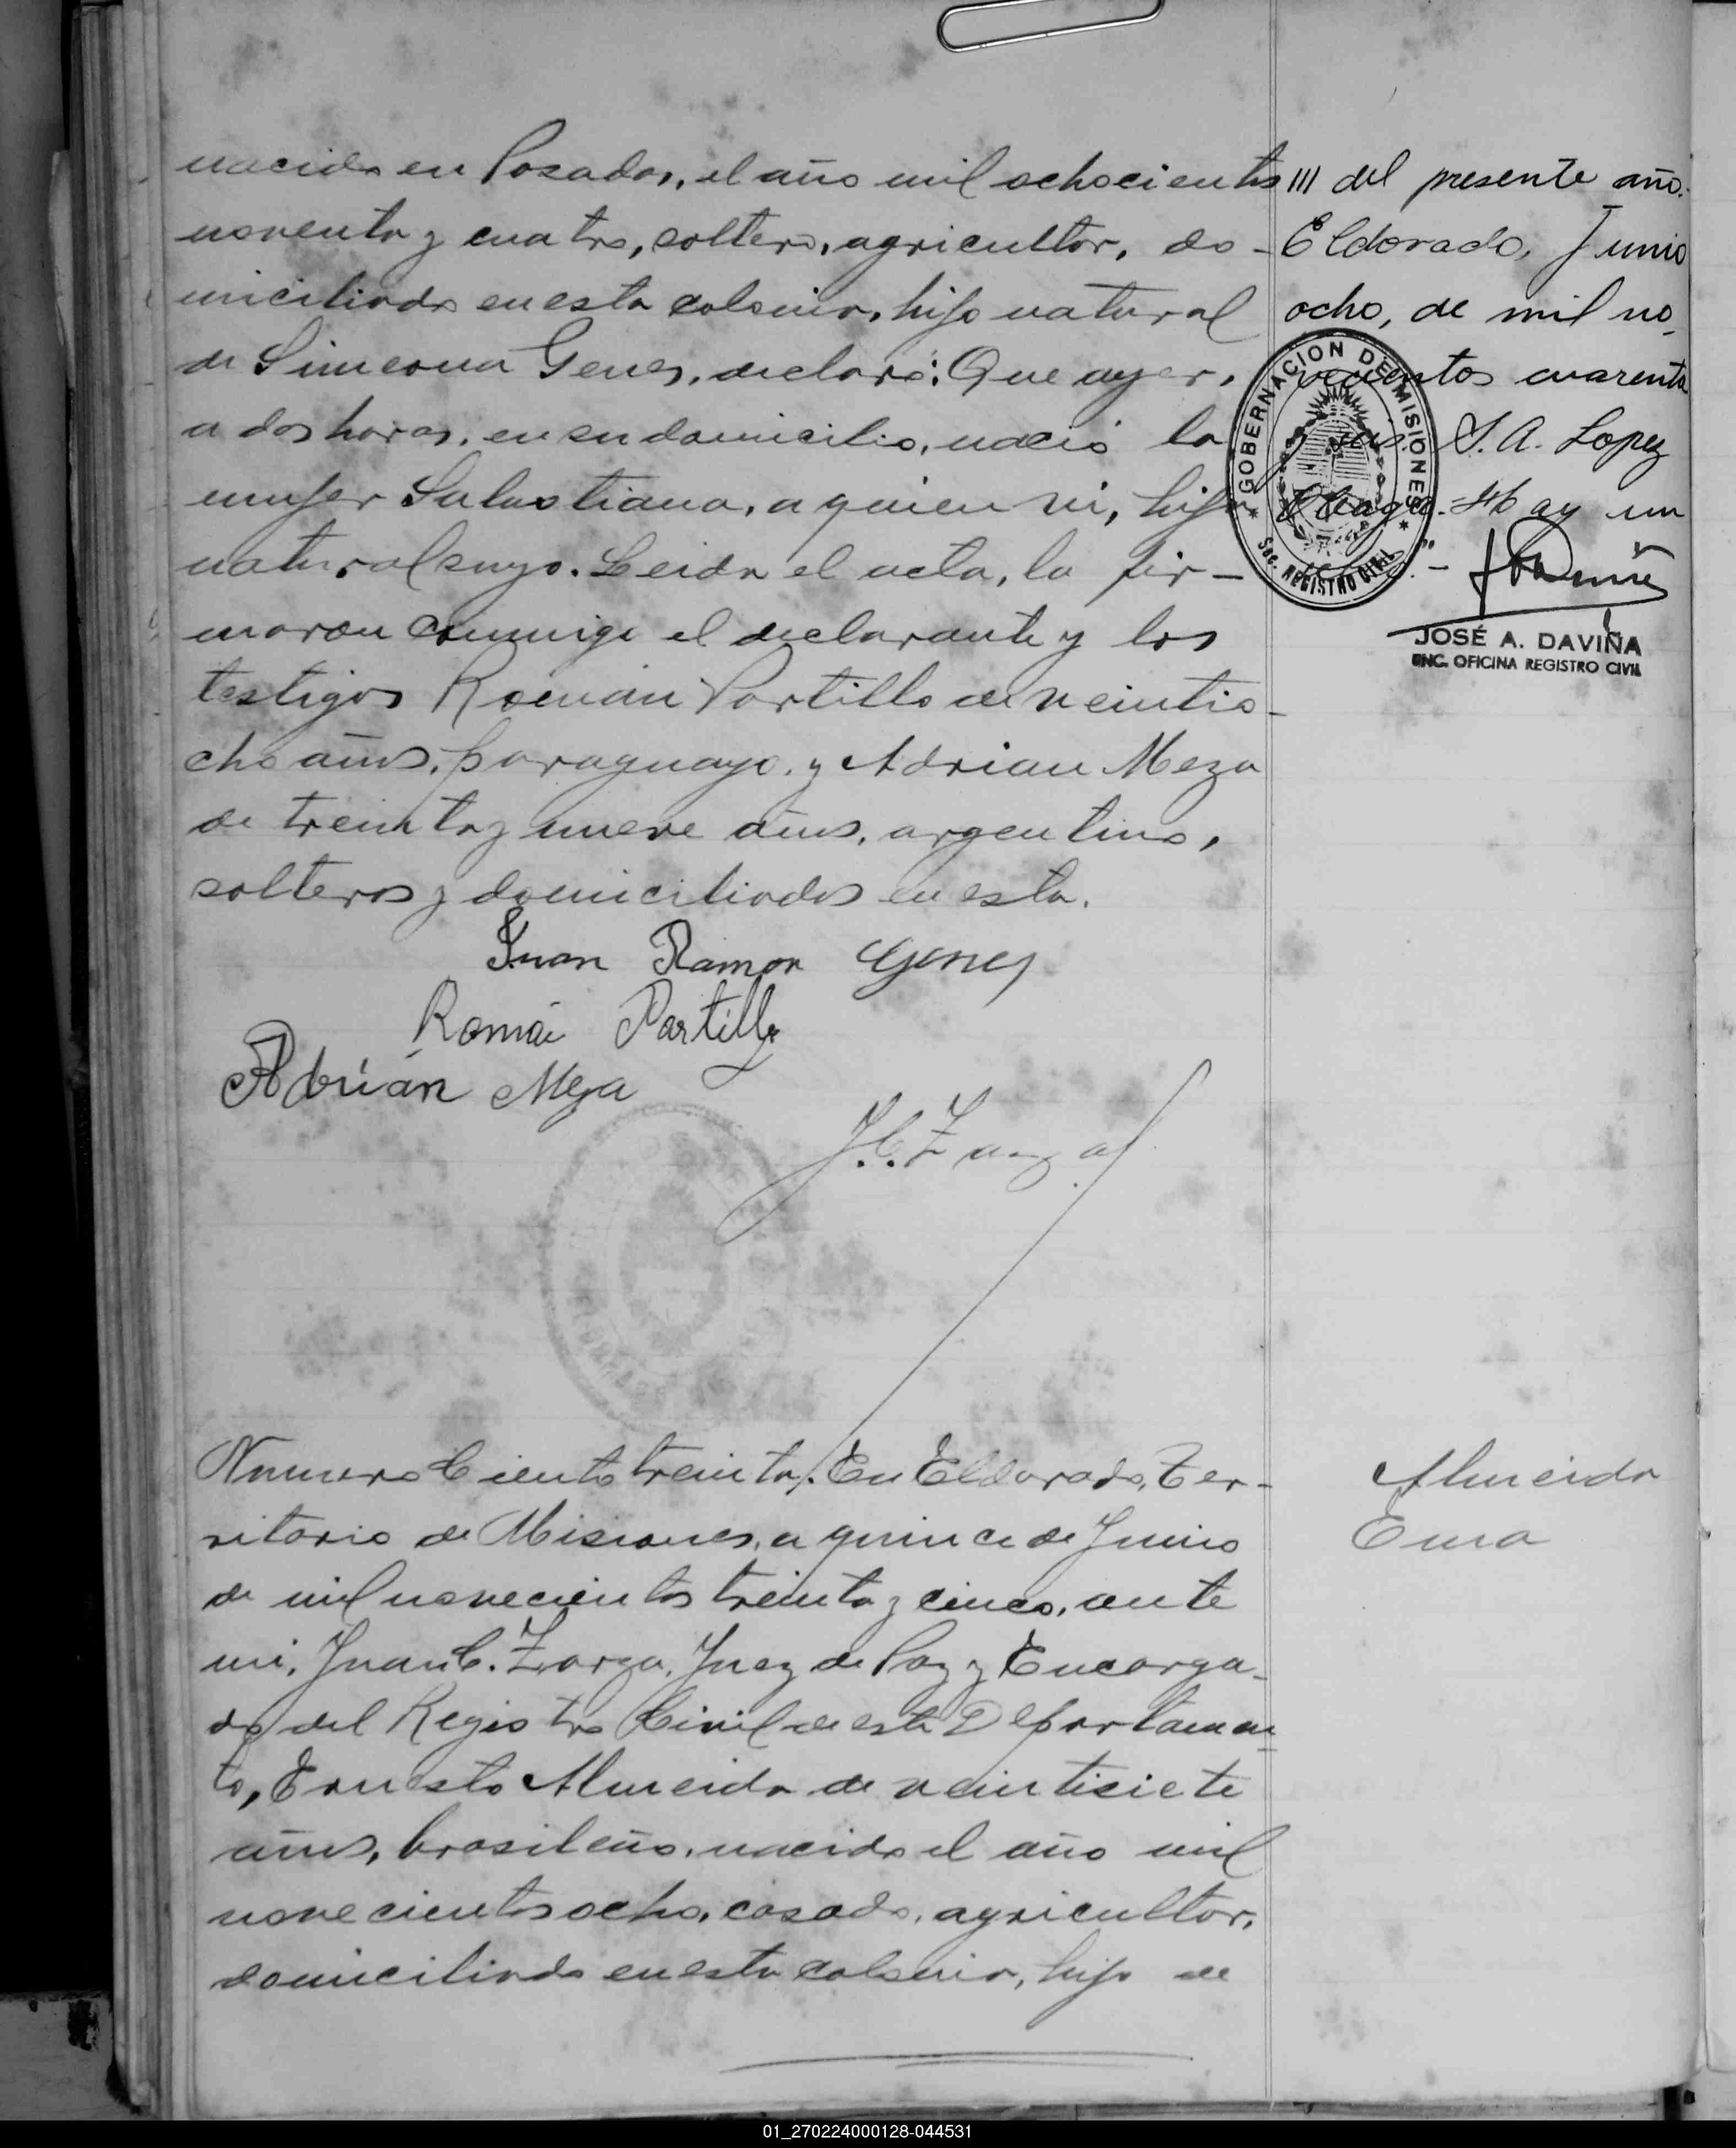 nacido en Posadas, el año mil ochocientos
noventa y cuatro, soltero, agricultor, do-
miciliado en esta colonia, hijo natural
de Simeona Genes, declaró: Que ayer,
a dos horas, en su domicilio, nació la
mujer Salustiana, a quien vi, hija
natural suya. Leida el acta, la fir-
maron conmigo el declarante y los
testigos Román Portillo de veintio-
cho años, paraguayo, y Adrian Meza
de treinta y nueve años, argentino,
solteros y domiciliados en esta.
Juan Ramon Genes
Román Portillo
Adrián Meza
J.C. Zarza
III del presente año.
Eldorado, Junio
ocho, de mil no-
vecientos cuarenta
S. A. Lopez
Hay un
GOBERNACION DE MISIONES
Sec. REGISTRO CIVIL
JOSÉ A. DAVIÑA
ENC. OFICINA REGISTRO CIVIL
Numero Ciento treinta. En Eldorado, Ter-
ritorio de Misiones, a quince de Junio
de mil novecientos treinta y cinco, ante
mi, Juan C. Zarza, Juez de Paz y Encarga-
do del Registro Civil de este Departamen-
to, Ernesto Almeida de veintisiete
años, brasileño, nacido el año mil
novecientos ocho, casado, agricultor,
domiciliado en esta colonia, hijo de
Almeida
Ema
01_270224000128-044531